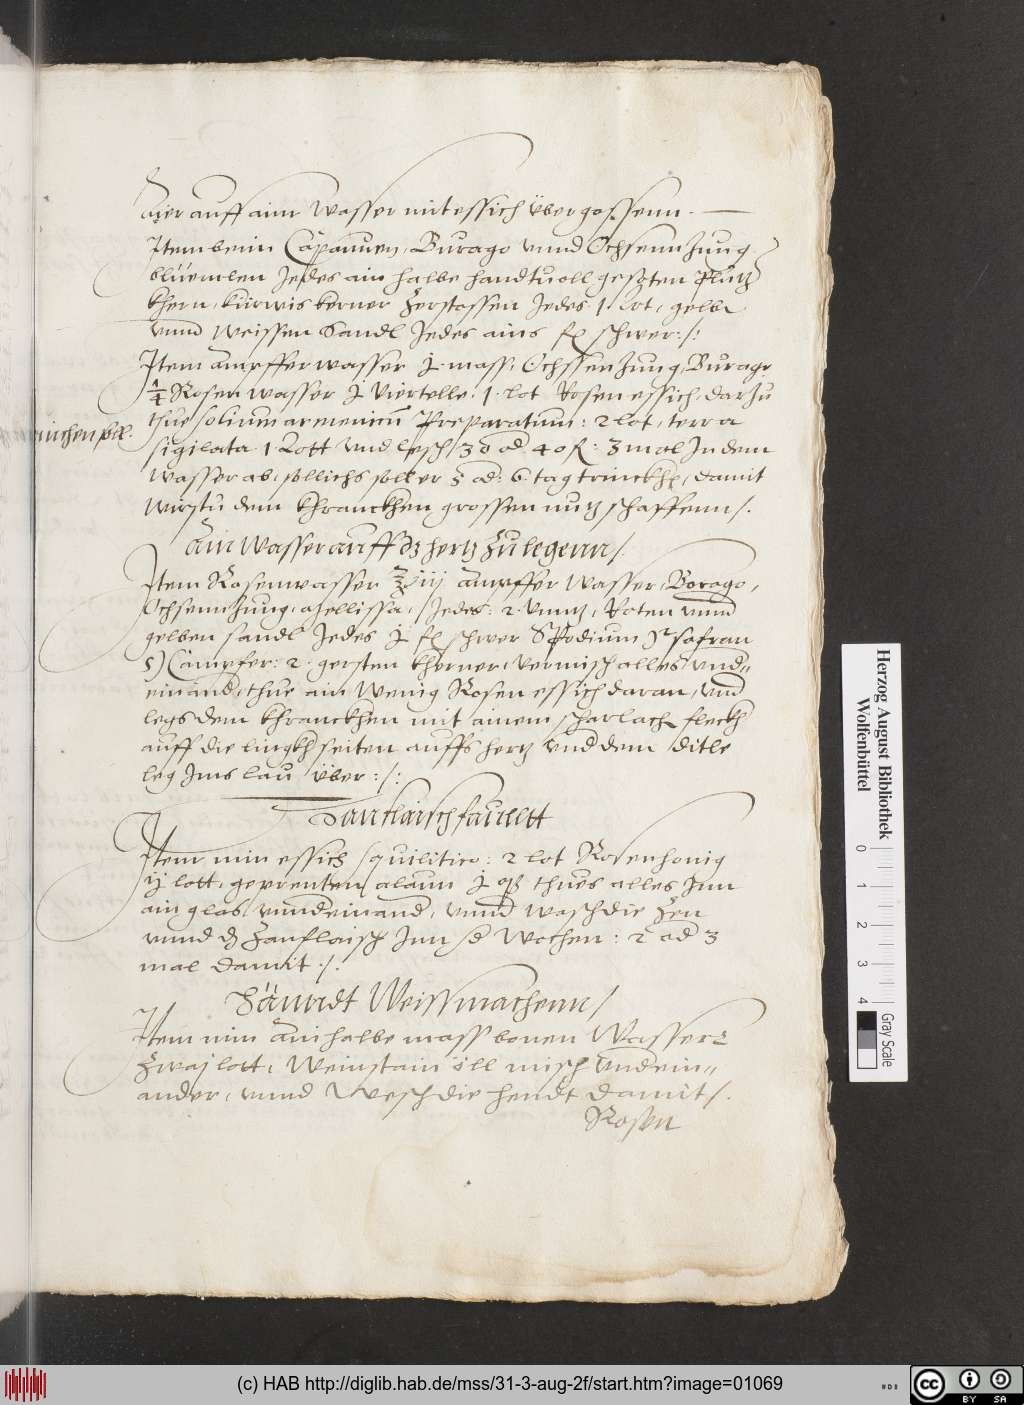 aier auff ain Wasser mit essich Übergossenn. —
Item benin Capauner, Burago vnnd Ochsenn Zung
blüemlen Jedes ain halbe handtvoll gesoten
khern, kürwis kerner Zerstossen Jedes 1. lot, gelbe
vnnd Weissen Sandl Jedes ains schwer:/:
Item ampffer wasser mass, Ochssen Zung, Burago
1/4 Rosen wasser Viertelle, 1. lot Rosen essich, darzu
thue armenicum Preparatum: 2 lot, terra
sigilata 1 Lott vnd lesch 30 od 40: 3 mal In dem
wasser ab, sollichs soll er 5 od: 6. tag trinckh, damit
Wirstu dem khranckhen grossen nutz schaffenn/.
Ain Wasser auff dz hertz Zu legenn/.
Item Rosenwasser ampffer Wasser, Borago,
Ochsenn Zung, Mellissa, Jedes: 2. Vnntz, Roten vnnd
gelben sandl Jedes schwer Spodium safran
Campfer: 2. gersten kherner, Vermisch alles vnd„
einand, thue ain Wenig Rosen essich daran, vnd
legs dem khranckhen mit ainem scharlach fleckh
auff die lingkh seiten auffs hertz vnd dem ditle
leg Ims lau über:/:
Zanflaisch
Item nim essich squilitico: 2 lot Rosenhonig
ij lott, geprenten alaun thues alles Inn
ain glas, vnndeinand, vnnd wasch die Zen
vnnd dz Zanflaisch Inn d Wochen: 2 od 3
mal damit:/.
Hänndt Weissmachenn/
Item nim ain halbe mass bonen Wasser
Zwaj lott, Weinstain öll misch vndein„
ander, vnnd Wesch die hendt damit/.
Rosen
Herzog August Bibliothek
Wolfenbüttel
0 1 2 3 4
Gray Scale
(c) HAB http://diglib.hab.de/mss/31-3-aug-2f/start.htm?image=01069
cc BY SA